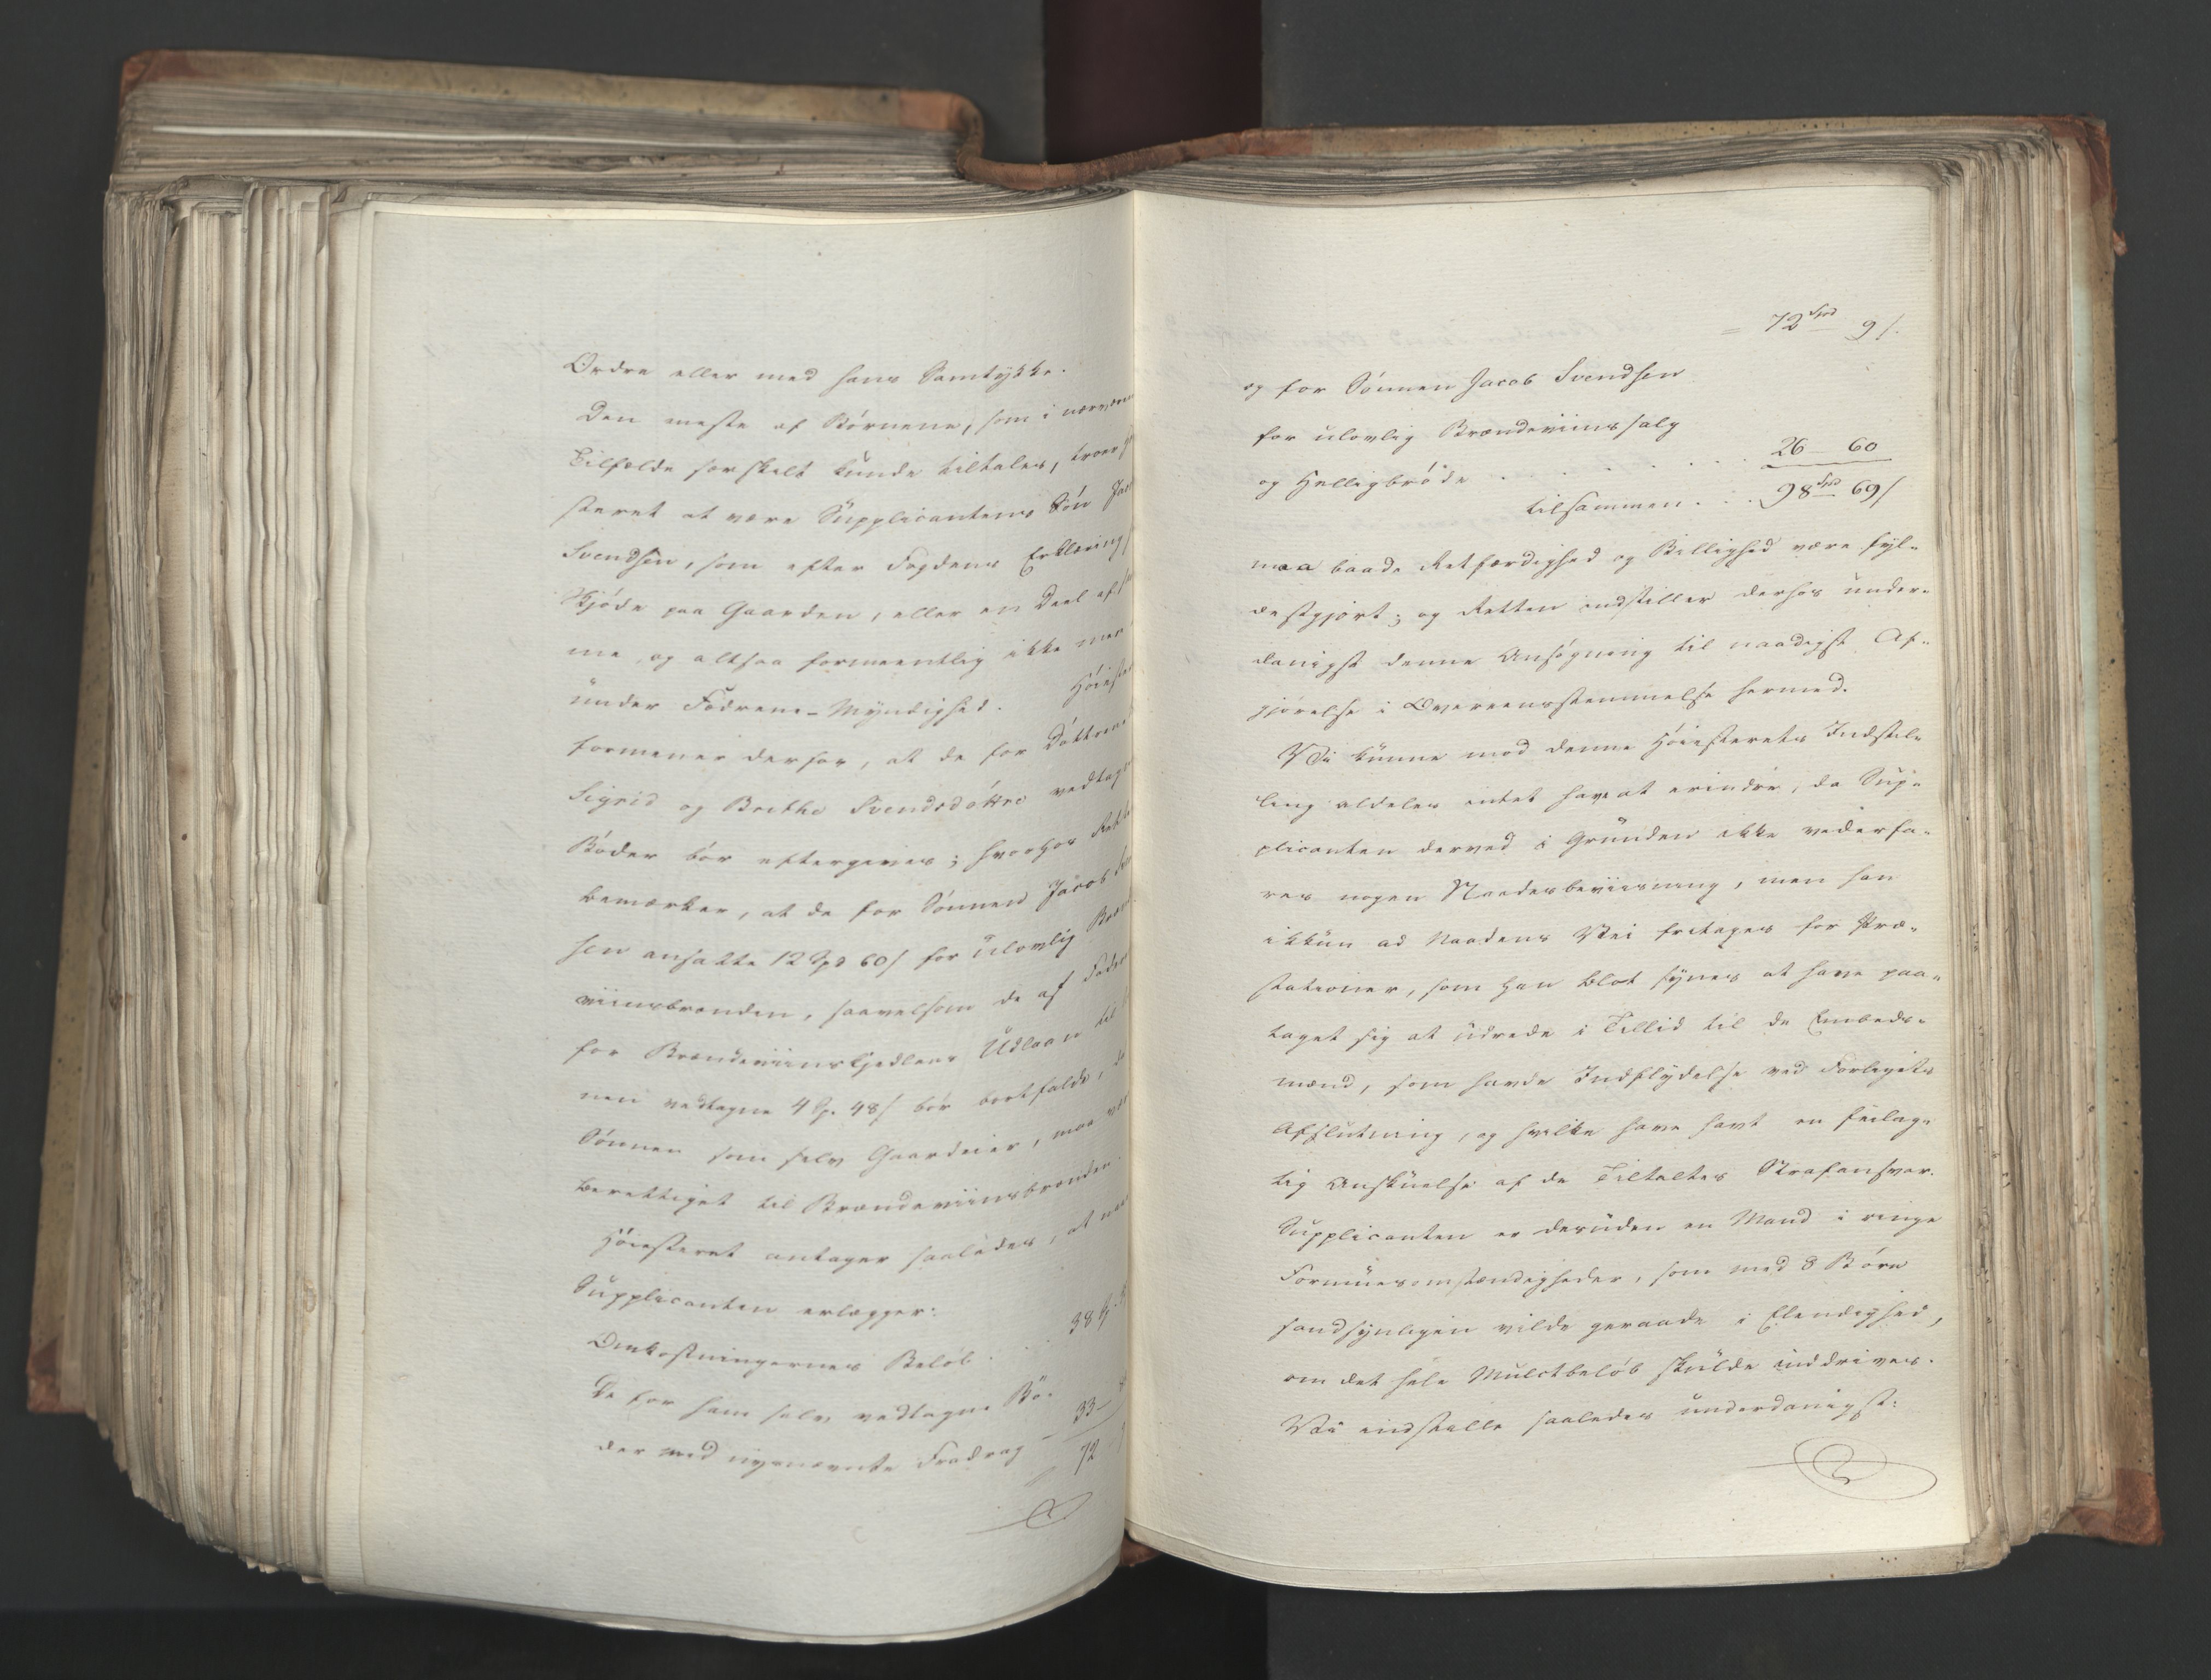 Ordre eller med hans Samtykke.
Den meste af Børnene, som i nærværen
Tilfælde særskilt kunde tiltales, troer
steret at være Supplicantens Søn Jac
Svendsen, som efter Fogdens Erklæring
Skjøde paa Gaarden, eller en Deel af
me, og altsaa formeentlig ikke mer
under Fædrene-Myndighed. Høieste
formener derfor, at de for Døttrene
Sigrid og Brithe Svendsdøttre vedtag
Bøder bør eftergives; hvorhos Rett
bemærker, at de for Sønnen Jacob Sven
sen ansatte 12 Spd 60 s for ulovlig Bræn
viinsbrænden, saavelsom de af Fader
for Brændeviinskjedlens Udlaan til
nen vedtagne 4 Sp. 48 s bør bortfalde,
Sønnen som selv Gaardeier, maa vær
berettiget til Brændeviinsbrænden.
Høiesteret antager saaledes, at naar
Supplicanten erlægger:
Omkostningernes Beløb . . 38 Sp.
De for ham selv vedtagne Bø-
der med nysnævnte Fradrag 33
72
= 72 Spd 9 s.
og for Sønnen Jacob Svendsen
for ulovlig Brændeviinssalg
og Helligbrøde . . . . . . 26 60
tilsammen . . . 98 Spd 69 s
maa baade Retfærdighed og Billighed være fyl-
destgjort; og Retten indstiller derhos under-
danigst denne Ansøgning til naadigst Af-
gjørelse i Overeensstemmelse hermed.
Vi kunne mod denne Høiesterets Indstil-
ling aldeles intet have at erindre, da Sup-
plicanten derved i Grunden ikke vederfa-
res nogen Naadesbeviisning, men han
ikkun ad Naadens Vei fritages for Præ-
stationer, som han blot synes at have paa-
taget sig at udrede i Tillid til de Embeds-
mænd, som havde Indflydelse ved Forligets
Afslutning, og hvilke have havt en feilag-
tig Anskuelse af de Tiltaltes Strafansvar.
Supplicanten er desuden en Mand i ringe
Formuesomstændigheder, som med 8 Børn
sandsynligen vilde geraade i Elendighed,
om det hele Mulctbeløb skulde inddrives.
Vi indstille saaledes underdanigst: